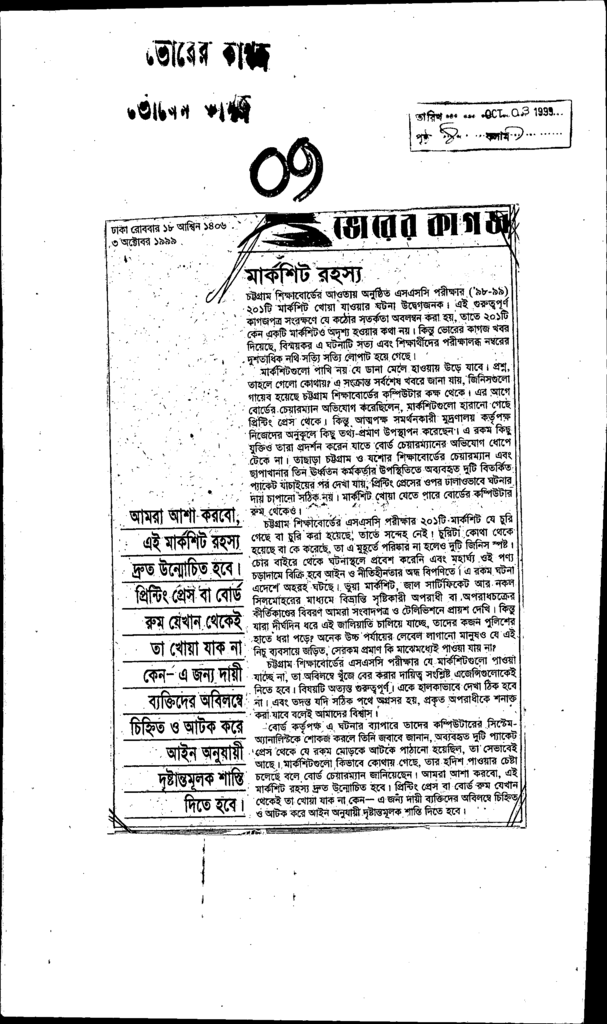 ভোরের কাগজ
ভোরের কাগজ
তারিখ ... OCT. 03 1999...
পৃষ্ঠ ... কলাম ...
০৭
ঢাকা রোববার ১৮ আশ্বিন ১৪০৬
৩ অক্টোবর ১৯৯৯
ভোরের কাগজ
মার্কশিট রহস্য
চট্টগ্রাম শিক্ষাবোর্ডের আওতায় অনুষ্ঠিত এসএসসি পরীক্ষার (’৯৮-৯৯)
২০১টি মার্কশিট খোয়া যাওয়ার ঘটনা উদ্বেগজনক। এই গুরুত্বপূর্ণ
কাগজপত্র সংরক্ষণে যে কঠোর সতর্কতা অবলম্বন করা হয়, তাতে ২০১টি
কেন একটি মার্কশিটও অদৃশ্য হওয়ার কথা নয়। কিন্তু ভোরের কাগজ খবর
দিয়েছে, বিস্ময়কর এ ঘটনাটি সত্য এবং শিক্ষার্থীদের পরীক্ষালব্ধ নম্বরের
দুশতাধিক নথি সত্যি সত্যি লোপাট হয়ে গেছে।
মার্কশিটগুলো পাখি নয় যে ডানা মেলে হাওয়ায় উড়ে যাবে। প্রশ্ন,
তাহলে গেলো কোথায়? এ সংক্রান্ত সর্বশেষ খবরে জানা যায়, জিনিসগুলো
গায়েব হয়েছে চট্টগ্রাম শিক্ষাবোর্ডের কম্পিউটার কক্ষ থেকে। এর আগে
বোর্ডের চেয়ারম্যান অভিযোগ করেছিলেন, মার্কশিটগুলো হারানো গেছে
প্রিন্টিং প্রেস থেকে। কিন্তু আত্মপক্ষ সমর্থনকারী মুদ্রণালয় কর্তৃপক্ষ
নিজেদের অনুকূলে কিছু তথ্য-প্রমাণ উপস্থাপন করেছেন। এ রকম কিছু
যুক্তিও তারা প্রদর্শন করেন যাতে বোর্ড চেয়ারম্যানের অভিযোগ ধোপে
টেকে না। তাছাড়া চট্টগ্রাম ও যশোর শিক্ষাবোর্ডের চেয়ারম্যান এবং
ছাপাখানার তিন ঊর্ধ্বতন কর্মকর্তার উপস্থিতিতে অব্যবহৃত দুটি বিতর্কিত
প্যাকেট যাচাইয়ের পর দেখা যায়, প্রিন্টিং প্রেসের ওপর ঢালাওভাবে ঘটনার
দায় চাপানো সঠিক নয়। মার্কশিট খোয়া যেতে পারে বোর্ডের কম্পিউটার
রুম থেকেও।
চট্টগ্রাম শিক্ষাবোর্ডের এসএসসি পরীক্ষার ২০১টি মার্কশিট যে চুরি
গেছে বা চুরি করা হয়েছে, তাতে সন্দেহ নেই। চুরিটা কোথা থেকে
হয়েছে বা কে করেছে, তা এ মুহূর্তে পরিষ্কার না হলেও দুটি জিনিস স্পষ্ট।
চোর বাইরে থেকে ঘটনাস্থলে প্রবেশ করেনি এবং মহার্ঘ্য ওই পণ্য
চড়াদামে বিক্রি হবে আইন ও নীতিহীনতার অন্ধ বিপণিতে। এ রকম ঘটনা
এদেশে অহরহ ঘটছে। ভুয়া মার্কশিট, জাল সার্টিফিকেট আর নকল
সিলমোহরের মাধ্যমে বিভ্রান্তি সৃষ্টিকারী অপরাধী বা অপরাধচক্রের
কীর্তিকাণ্ডের বিবরণ আমরা সংবাদপত্র ও টেলিভিশনে প্রায়শ দেখি। কিন্তু
যারা দীর্ঘদিন ধরে এই জালিয়াতি চালিয়ে যাচ্ছে, তাদের কজন পুলিশের
হাতে ধরা পড়ে? অনেক উচ্চ পর্যায়ের লেবেল লাগানো মানুষও যে এই
নিচু ব্যবসায়ে জড়িত, সেরকম প্রমাণ কি মাঝেমধ্যেই পাওয়া যায় না?
চট্টগ্রাম শিক্ষাবোর্ডের এসএসসি পরীক্ষার যে মার্কশিটগুলো পাওয়া
যাচ্ছে না, তা অবিলম্বে খুঁজে বের করার দায়িত্ব সংশ্লিষ্ট এজেন্সিগুলোকেই
নিতে হবে। বিষয়টি অত্যন্ত গুরুত্বপূর্ণ। একে হালকাভাবে দেখা ঠিক হবে
না। এবং তদন্ত যদি সঠিক পথে অগ্রসর হয়, প্রকৃত অপরাধীকে শনাক্ত
করা যাবে বলেই আমাদের বিশ্বাস।
বোর্ড কর্তৃপক্ষ এ ঘটনার ব্যাপারে তাদের কম্পিউটারের সিস্টেম-
অ্যানালিস্টকে শোকজ করলে তিনি জবাবে জানান, অব্যবহৃত দুটি প্যাকেট
প্রেস থেকে যে রকম মোড়কে আটকে পাঠানো হয়েছিল, তা সেভাবেই
আছে। মার্কশিটগুলো কিভাবে কোথায় গেছে, তার হদিশ পাওয়ার চেষ্টা
চলেছে বলে বোর্ড চেয়ারম্যান জানিয়েছেন। আমরা আশা করবো, এই
মার্কশিট রহস্য দ্রুত উন্মোচিত হবে। প্রিন্টিং প্রেস বা বোর্ড রুম যেখান
থেকেই তা খোয়া যাক না কেন— এ জন্য দায়ী ব্যক্তিদের অবিলম্বে চিহ্নিত
ও আটক করে আইন অনুযায়ী দৃষ্টান্তমূলক শাস্তি দিতে হবে।
আমরা আশা করবো,
এই মার্কশিট রহস্য
দ্রুত উন্মোচিত হবে।
প্রিন্টিং প্রেস বা বোর্ড
রুম যেখান থেকেই
তা খোয়া যাক না
কেন– এ জন্য দায়ী
ব্যক্তিদের অবিলম্বে
চিহ্নিত ও আটক করে
আইন অনুযায়ী
দৃষ্টান্তমূলক শাস্তি
দিতে হবে।